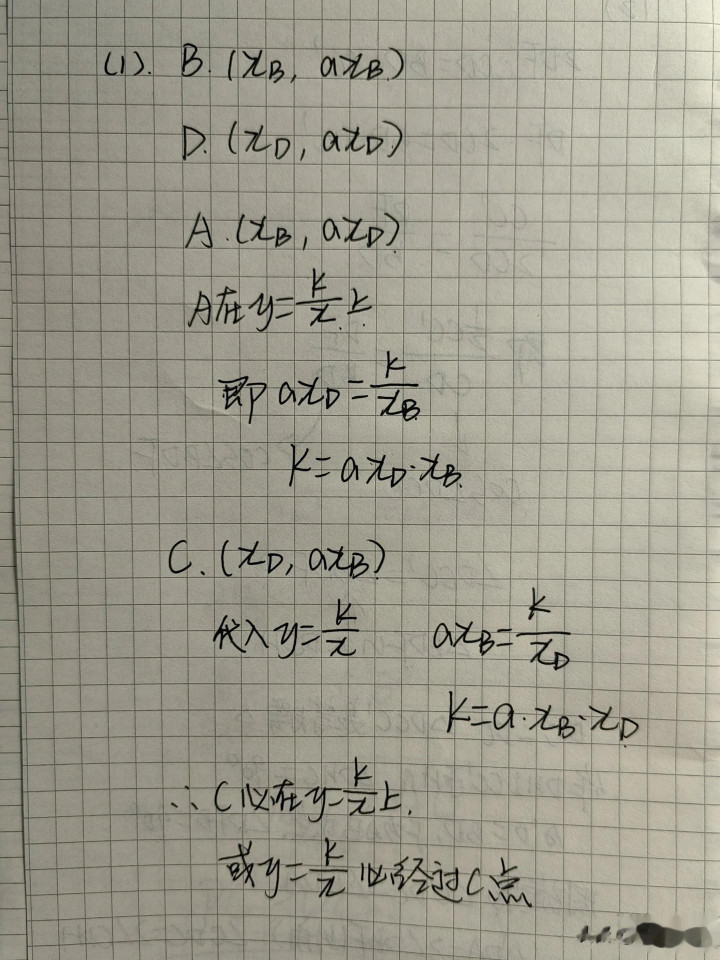 (1). B. (x_B, ax_B)
D. (x_D, ax_D)
A. (x_B, ax_D)
A在 y=\frac{k}{x}上
即 ax_D=\frac{k}{x_B}
K=ax_D·x_B.
C. (x_D, ax_B)
代入 y=\frac{k}{x} ax_B=\frac{k}{x_D}
K=a·x_B·x_D
∴ C必在y=\frac{k}{x}上.
或 y=\frac{k}{x} 必经过C点